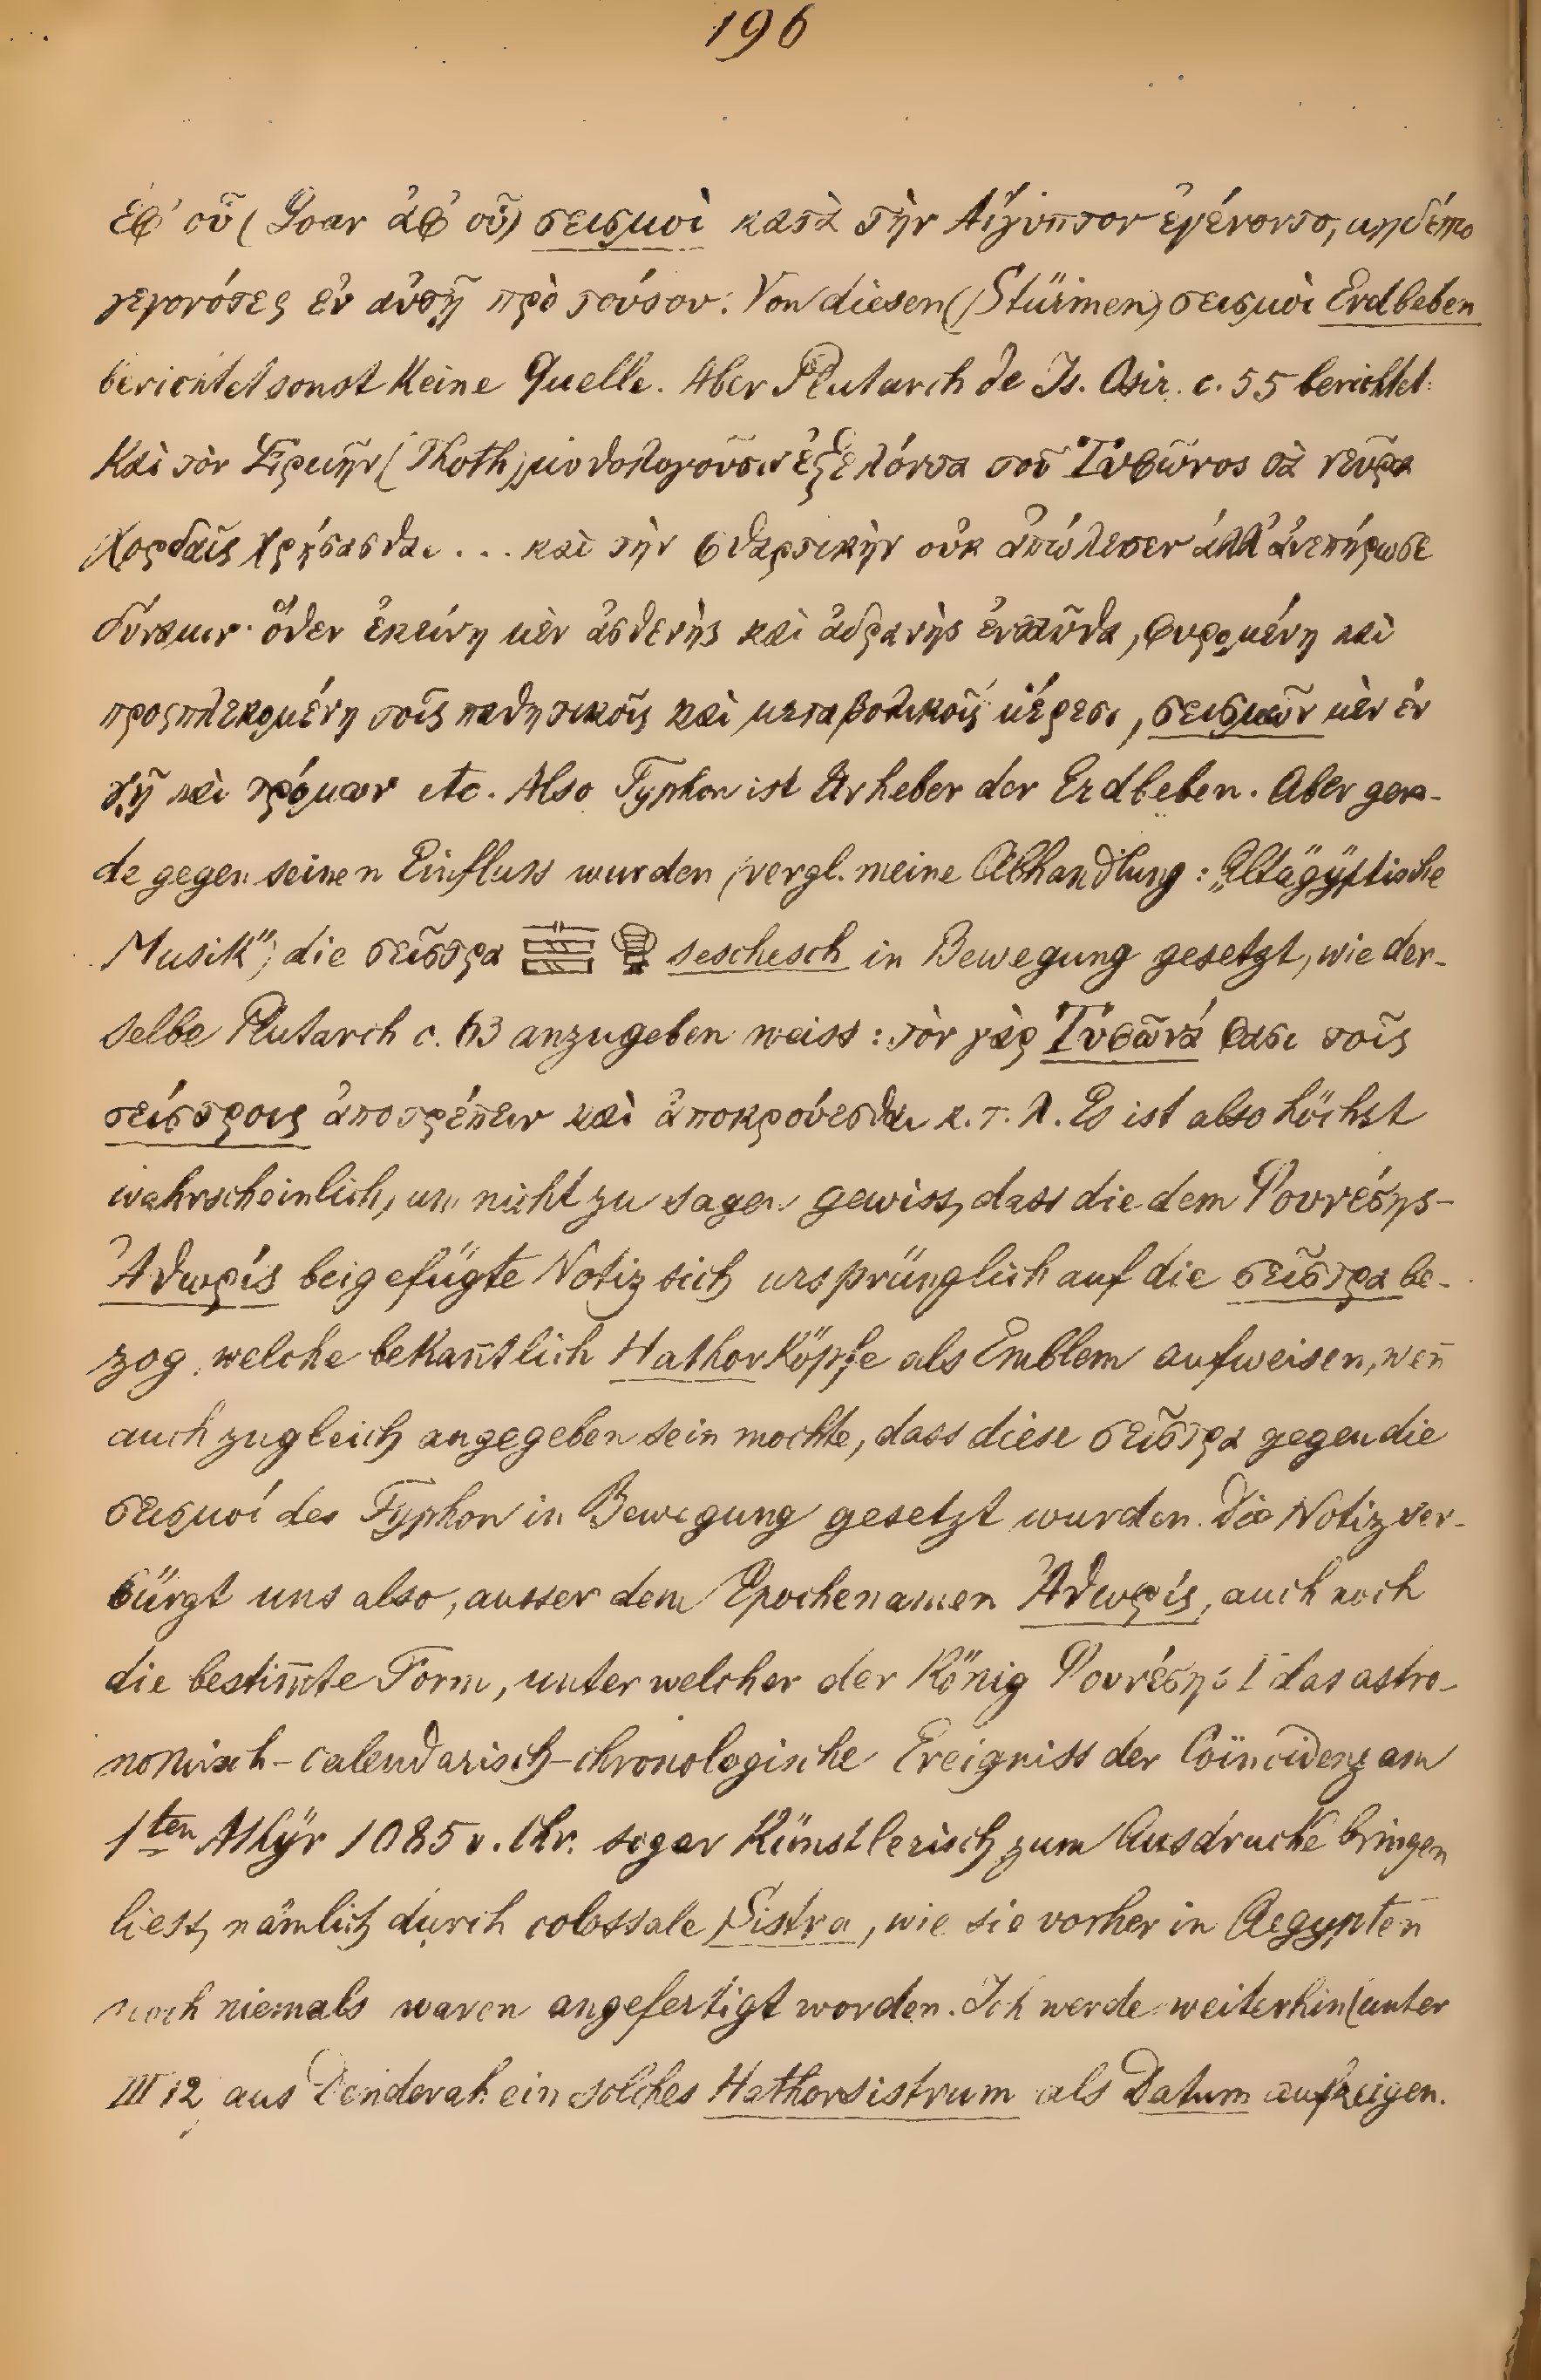 196
ἐφ' οὗ (Goar ἀφ' οὗ) σεισμοὶ κατὰ τὴν Αἴγυπτον ἐγένοντο, μηδέπο
γεγονότες ἐν αὐτῇ πρὸ τούτου. Von diesen (Stürmen) σεισμοὶ Erdbeben
berichtet sonst keine Quelle. Aber Plutarch de Is. Osir. c. 55 berichtet:
Καὶ τὸν Ἑρμῆν (Thoth) μυθολογοῦσιν ἐξελόντα τοῦ Τυφῶνος τὰ νεῦρα
χορδαῖς χρήσασθαι ... καὶ τὴν φθαρτικὴν οὐκ ἀπώλεσεν ἀλλ' ἀνεπήρωσε
δύναμιν· ὅθεν ἐκείνη μὲν ἀσθενὴς καὶ ἀδρανὴς ἐνταῦθα, φυρομένη καὶ
προςπλεκομένη τοῖς παθητικοῖς καὶ μεταβολικοῖς μέρεσι, σεισμῶν μὲν ἐν
γῇ καὶ τρόμων etc. Also Typhon ist Urheber der Erdbeben. Aber gera-
de gegen seinen Einfluss wurden (vergl. meine Abhandlung: „Altägyptische
Musik") die σεῖστρα seschesch in Bewegung gesetzt, wie der-
selbe Plutarch c. 63 anzugeben weiss: τὸν γὰρ Τυφῶνά φασι τοῖς
σείστροις ἀποτρέπειν καὶ ἀποκρούεσθαι κ. τ. λ. Es ist also höchst
wahrscheinlich, um nicht zu sagen gewiss, dass die dem Ῥουνέσης-
Ἀθωρίς beigefügte Notiz sich ursprünglich auf die σεῖστρα be-
zog, welche bekan̄tlich Hathorköpfe als Emblem aufweisen, wen̄
auch zugleich angegeben sein mochte, dass diese σεῖστρα gegen die
σεισμοί des Typhon in Bewegung gesetzt wurden. Die Notiz ver-
bürgt uns also, ausser dem Epochenamen Ἀθωρίς, auch noch
die bestim̄te Form, unter welcher der König Ῥουνέσης I das astro-
nomisch-calendarisch-chronologische Ereigniss der Coïncidenz am
1ten Athyr 1085 v. Chr. sogar künstlerisch zum Ausdrucke bringen
liess, nämlich durch colossale Sistra, wie sie vorher in Aegypten
noch niemals waren angefertigt worden. Ich werde weiterhin (unter
III 12) aus Denderah ein solches Hathorsistrum als Datum aufzeigen.